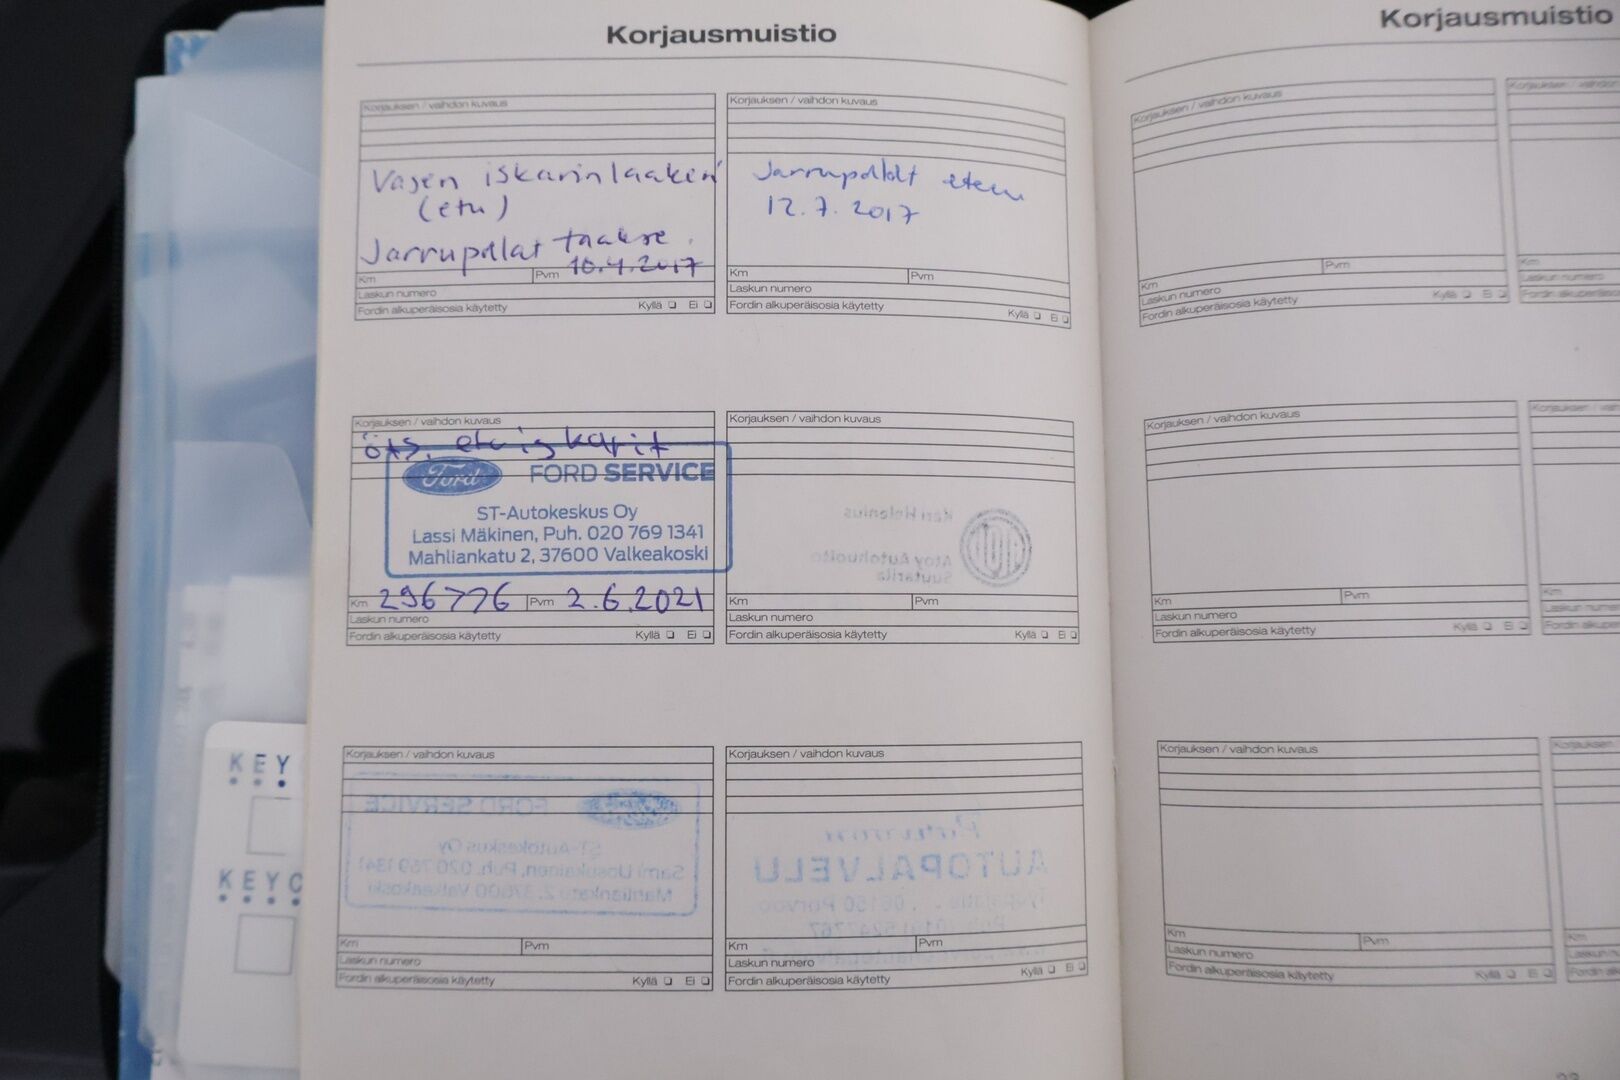 Korjausmuistio
Korjauksen / vaihdon kuvaus
Vasen iskarinlaakeri
(etu)
Jarrupalat taakse.
Km
Pvm 10.4.2017
Laskun numero
Fordin alkuperäisosia käytetty Kyllä ❏ Ei ❏
Korjauksen / vaihdon kuvaus
Jarrupalat eteen
12.7.2017
Km
Pvm
Laskun numero
Fordin alkuperäisosia käytetty Kyllä ❏ Ei ❏
Korjauksen / vaihdon kuvaus
etuiskarit
Ford FORD SERVICE
ST-Autokeskus Oy
Lassi Mäkinen, Puh. 020 769 1341
Mahliankatu 2, 37600 Valkeakoski
Km 296776 Pvm 2.6.2021
Laskun numero
Fordin alkuperäisosia käytetty Kyllä ❏ Ei ❏
Korjauksen / vaihdon kuvaus
Kari Helenius
Atoy Autohuolto
Suutarila
Km
Pvm
Laskun numero
Fordin alkuperäisosia käytetty Kyllä ❏ Ei ❏
Korjauksen / vaihdon kuvaus
FORD SERVICE
ST-Autokeskus Oy
Sami Uosukainen, Puh. 020 769 1341
Mahliankatu 2, 37600 Valkeakoski
Km
Pvm
Laskun numero
Fordin alkuperäisosia käytetty Kyllä ❏ Ei ❏
Korjauksen / vaihdon kuvaus
AUTOPALVELU
06150 Porvoo
Km
Pvm
Laskun numero
Fordin alkuperäisosia käytetty Kyllä ❏ Ei ❏
Korjausmuistio
Korjauksen / vaihdon kuvaus
Km
Pvm
Laskun numero
Fordin alkuperäisosia käytetty Kyllä ❏ Ei ❏
Korjauksen / vaihdon kuvaus
Km
Pvm
Laskun numero
Fordin alkuperäisosia käytetty Kyllä ❏ Ei ❏
Korjauksen / vaihdon kuvaus
Km
Pvm
Laskun numero
Fordin alkuperäisosia käytetty Kyllä ❏ Ei ❏
KEY
KEYC